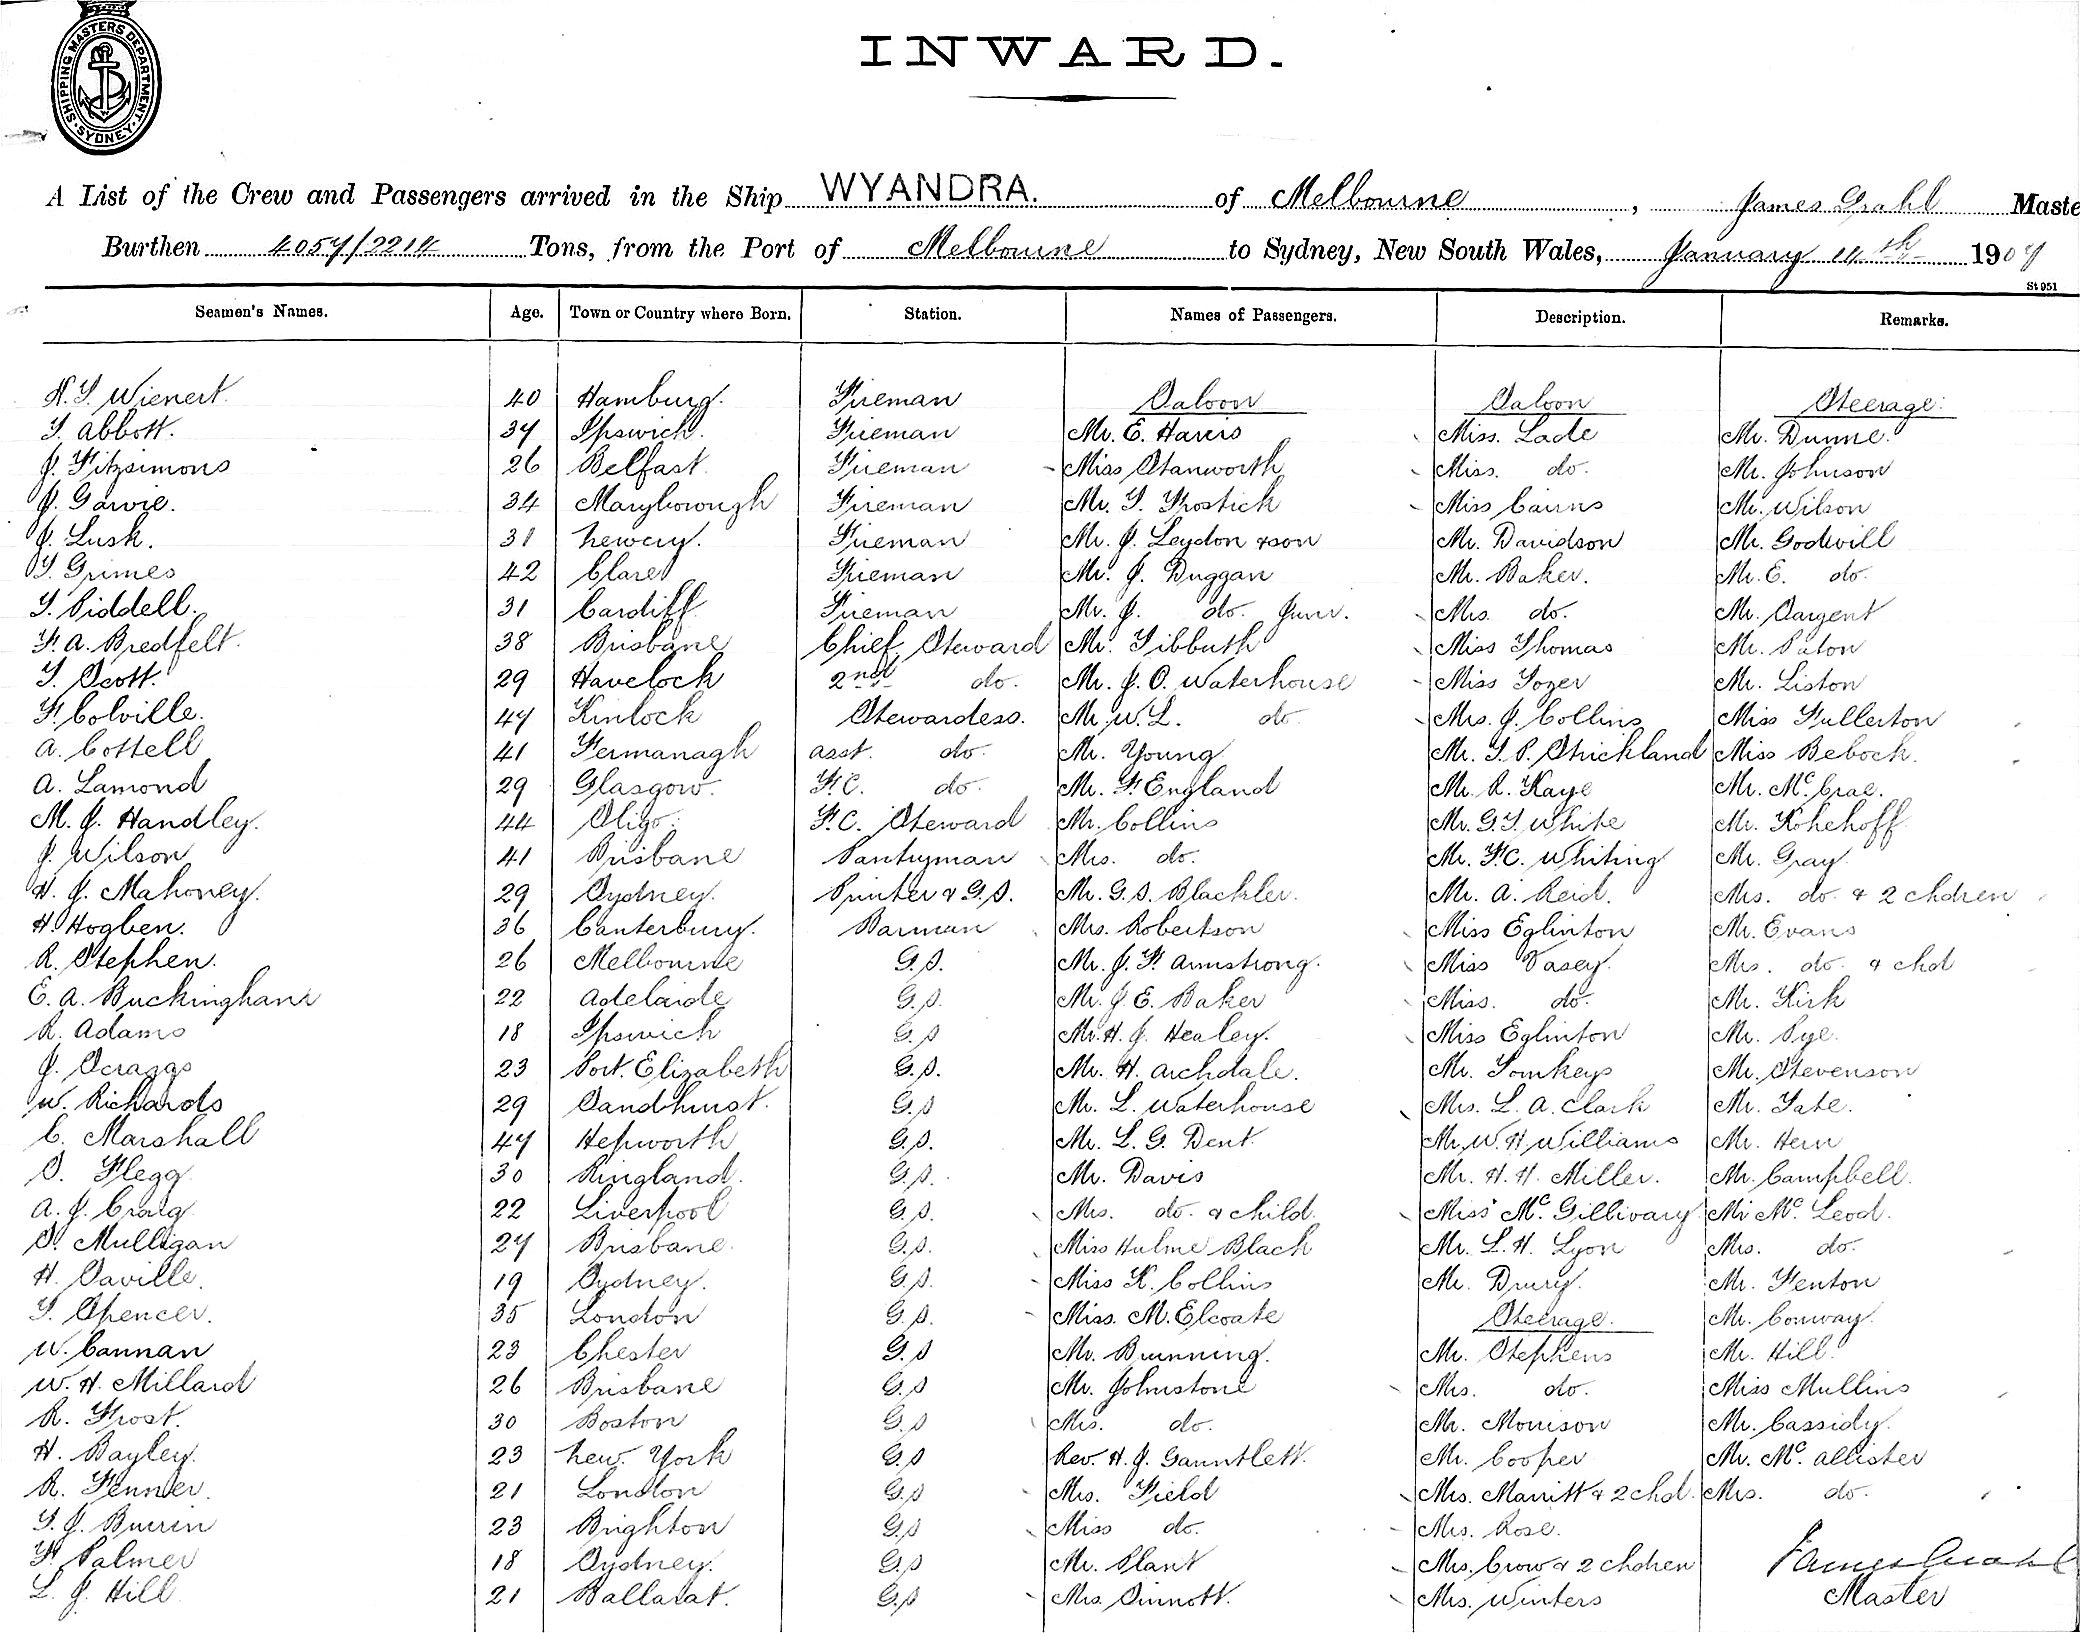 SHIPPING MASTERS DEPARTMENT. SYDNEY
INWARD.
A List of the Crew and Passengers arrived in the Ship WYANDRA. of Melbourne, James Grahl Maste
Burthen 4057/2214 Tons, from the Port of Melbourne to Sydney, New South Wales, January 14th 1907
St 951
Seamen's Names. Age. Town or Country where Born. Station. Names of Passengers. Description. Remarks.
H. T. Wienert. 40 Hamburg. Fireman Saloon Saloon Steerage.
T. Abbott. 37 Ipswich. Fireman Mr. E. Harris Miss. Lade Mr. Dunne.
J. Fitzsimons 26 Belfast. Fireman Miss Stanworth Miss. do. Mr. Johnson
J. Garvie. 34 Maryborough Fireman Mr. T. Trostick Miss Cairns Mr. Wilson
J. Lusk. 31 Newery. Fireman Mr. J. Leydon & son Mr. Davidson Mr. Godwill
T. Grimes 42 Clare Fireman Mr. J. Duggan Mr. Baker. Mr. E. do.
T. Piddell. 31 Cardiff Fireman Mr. J. do. Junr. Mrs. do. Mr. Sargent
F. A. Bredfelt. 38 Brisbane Chief Steward Mr. Tibbuth Miss Thomas Mr. Paton
T. Scott. 29 Havelock 2nd do. Mr. J. O. Waterhouse Miss Tozer Mr. Liston
F. Colville. 47 Kinlock Stewardess. Mr. W. L. do Mrs. J. Collins Miss Fullerton
A. Cottell 41 Fermanagh asst. do. Mr. Young Mr. T. P. Strickland Miss Beboch.
A. Lamond 29 Glasgow. F. C. do. Mr. F. England Mr. R. Kaye Mr. McCrae.
M. J. Handley. 44 Sligo. F. C. Steward Mr. Collins Mr. G. T. White Mr. Kohehoff
J. Wilson 41 Brisbane Pantryman Mrs. do. Mr. F. C. Whiting Mr. Gray.
H. J. Mahoney. 29 Sydney. Printer & G.S. Mr. G. S. Blackler. Mr. A. Reid. Mrs. do. & 2 chdren
H. Hogben. 36 Canterbury. Barman Mrs. Robertson Miss Eglinton Mr. Evans
R. Stephen. 26 Melbourne G.S. Mr. J. F. Armstrong. Miss Vasey. Mrs. do. & chd
E. A. Buckingham 22 Adelaide G.S. Mr. J. E. Baker Miss. do. Mr. Kirk
R. Adams 18 Ipswich G.S Mr. H. J. Healey. Miss Eglinton Mr. Pye.
J. Scraggs 23 Port. Elizabeth G.S. Mr. H. Archdale. Mr. Tomkeys Mr. Stevenson
W. Richards 29 Sandhurst. G.S Mr. L. Waterhouse Mrs. L. A. Clark Mr. Tate.
C. Marshall 47 Hepworth G.S. Mr. L. G. Dent. Mr. W. H. Williams Mr. Hern
S. Flegg 30 Ringland. G.S. Mr. Davis Mr. H. H. Miller. Mr. Campbell.
A. J. Craig 22 Liverpool G.S. Mrs. do. & child. Miss McGillivary Mr McLeod.
S. Mulligan 27 Brisbane. G.S. Miss Hulme Black Mr. L. H. Lyon Mrs. do.
H. Saville. 19 Sydney. G.S. Miss K. Collins Mr. Drury. Mr. Fenton
T. Spencer. 35 London G.S. Miss. M. Elcoate Steerage. Mr. Conway.
W. Cannan 23 Chester G.S Mr. Brunning. Mr. Stephens Mr. Hill.
W. H. Millard 26 Brisbane G.S Mr. Johnstone Mrs. do. Miss Mullins
R. Frost. 30 Boston G.S Mrs. do. Mr. Morrison Mr. Cassidy.
H. Bayley. 23 New. York G.S Rev. H. J. Gauntlett. Mr. Cooper Mr. McAllister
R. Fenner. 21 London G.S Mrs. Field Mrs. Marritt & 2 chd. Mrs. do.
T. J. Burrin 23 Brighton G.S Miss do. Mrs. Rose.
F. Palmer 18 Sydney. G.S Mr. Plant Mrs. Crow & 2 chdren James Grahl
L. J. Hill 21 Ballarat. G.S Mrs. Sinnott. Mrs. Winters Master